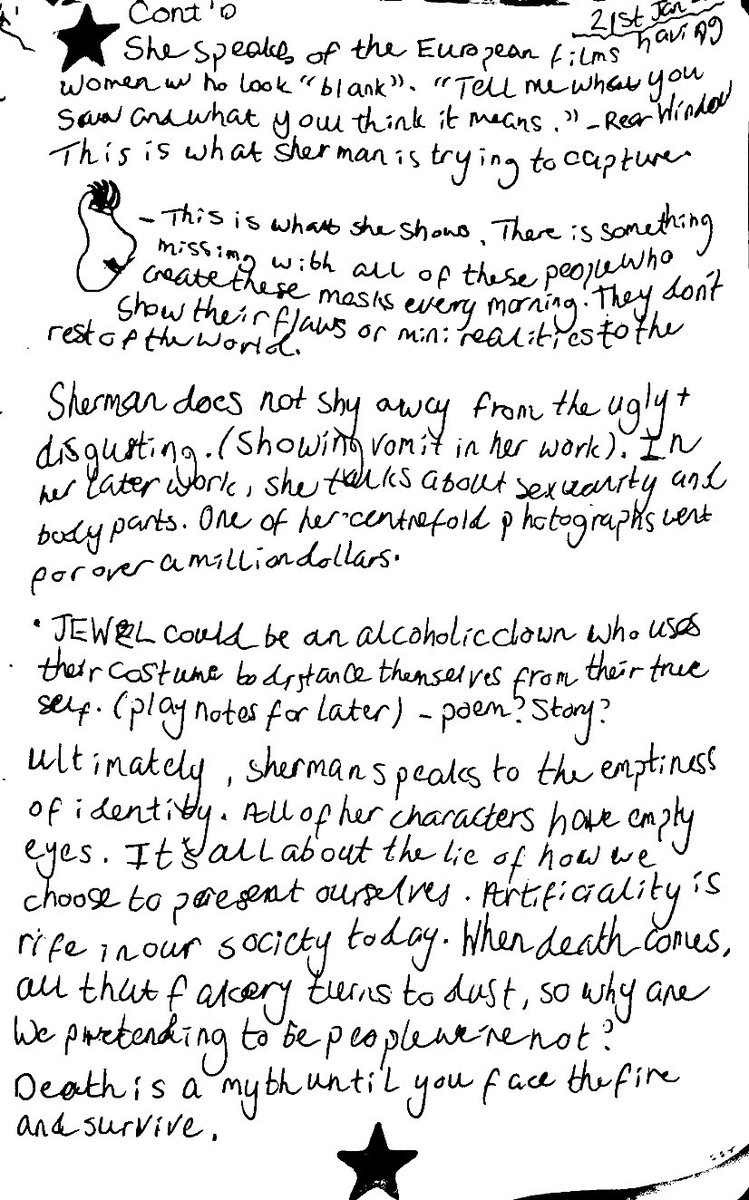 Cont'D
21st Jan
She speaks of the European films having
women who look "blank". "Tell me what you
saw and what you think it means." - Rear Window
This is what Sherman is trying to capture.
- This is what she shows. There is something
missing with all of these people who
create these masks every morning. They don't
show their flaws or mini realities to the
rest of the world.
Sherman does not shy away from the ugly +
disgusting. (Showing vomit in her work). In
her later work, she talks about sexuality and
body parts. One of her centrefold photographs went
for over a million dollars.
• JEWEL could be an alcoholic clown who uses
their costume to distance themselves from their true
self. (play notes for later) - poem? Story?
Ultimately, Sherman speaks to the emptiness
of identity. All of her characters have empty
eyes. It's all about the lie of how we
choose to present ourselves. Artificiality is
rife in our society today. When death comes,
all that fakery turns to dust, so why are
we pretending to be people we're not?
Death is a myth until you face the fire
and survive.